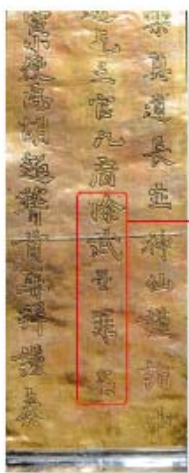 樂真道長生神仙謹詣
乞三官九府除武曌罪名
小使𢘑胡超稽首再拜謹奏